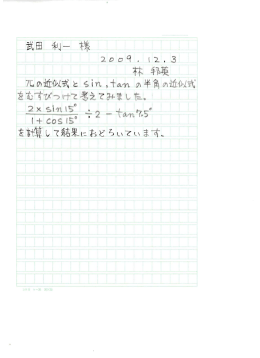 武田 利一 様
2009.12.3
林 邦英
πの近似式とsin,tanの半角の近似式
をむすびつけて考えてみました。
2×sin15°/1+cos15° ÷2-tan7.5°
を計算して結果におどろいています。